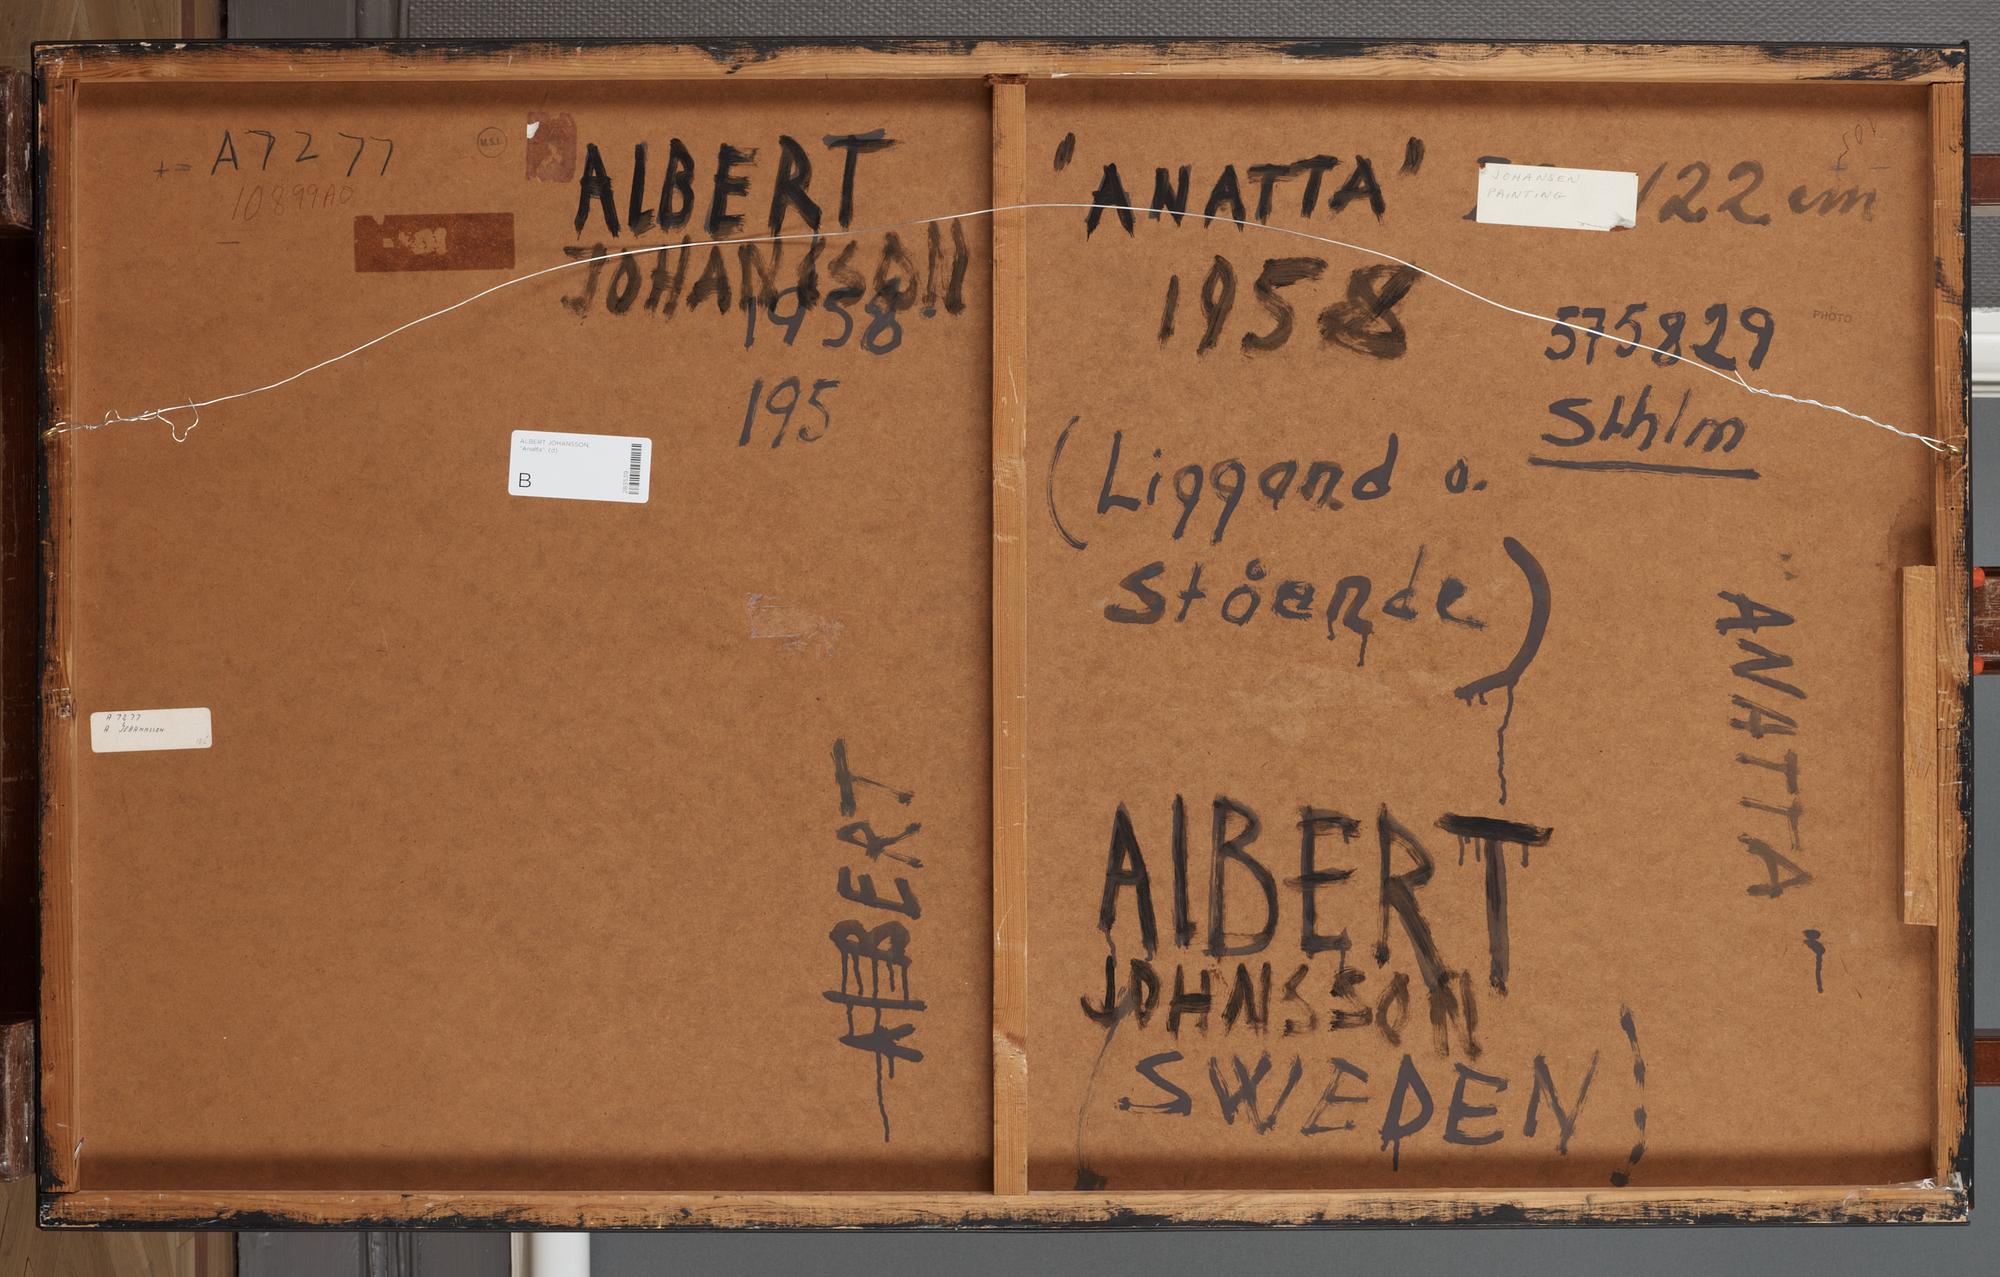 A7277
10899A0
M.S.I.
ALBERT
JOHANSSON
1958
195
ALBERT JOHANSSON
"Anatta". (d)
B
A 7277
A JOHANSSON
ALBERT
"ANATTA"
122 cm
JOHANSEN
PAINTING
1958
575829
Sthlm
PHOTO
(Liggand o.
Stående)
"ANATTA"
AlBERT
JOHNSSON
(SWEDEN)